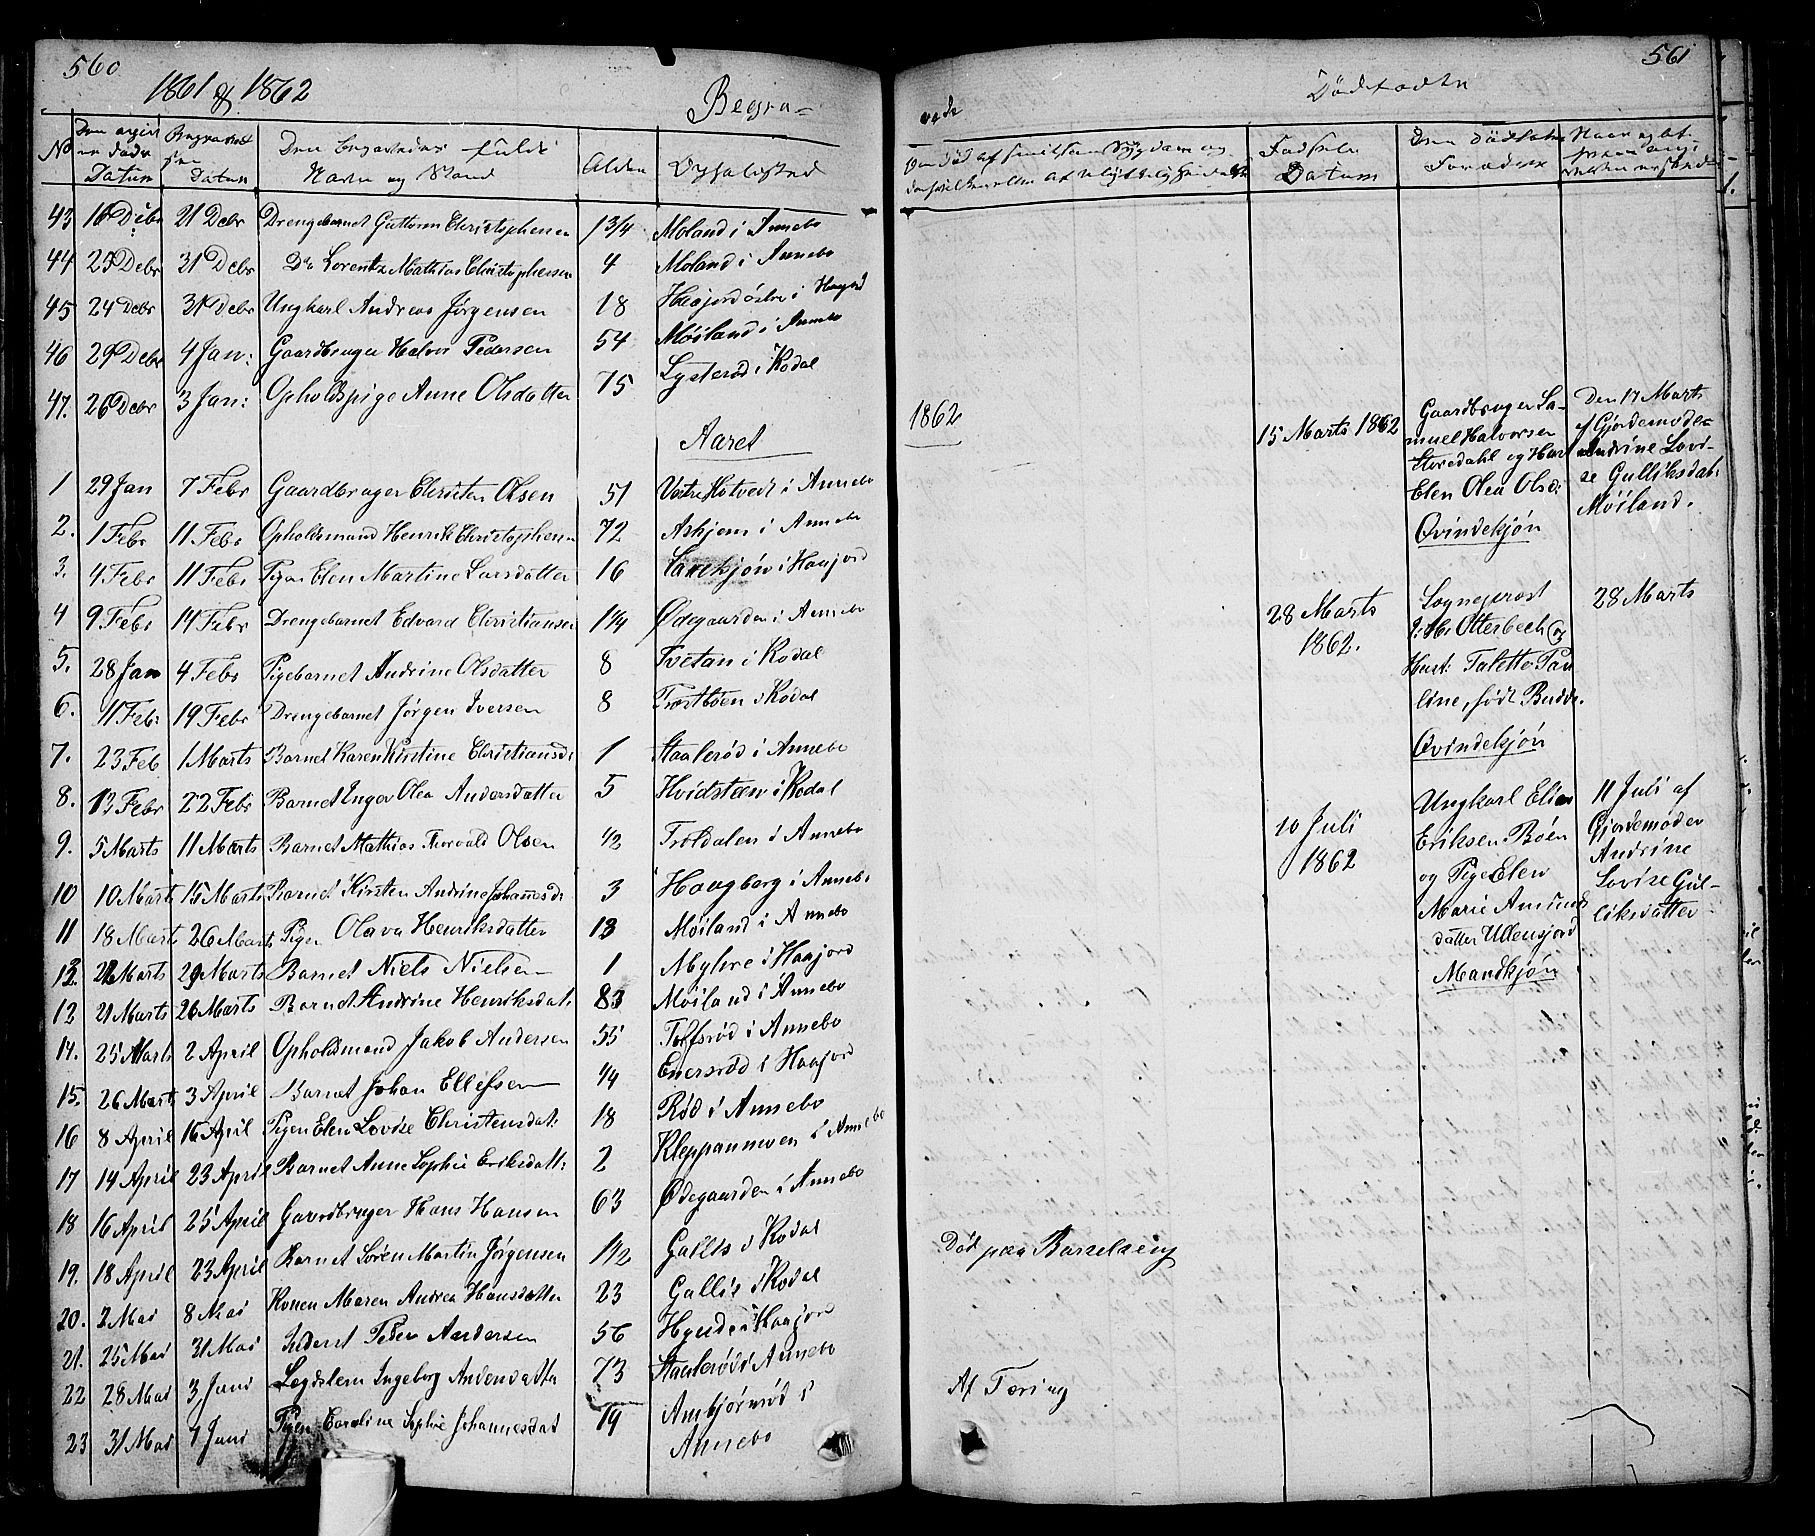 560
1861 & 1862
Begra-
No Den angiv er døde Datum Begravelsen Datum Den Begravedes fulde Navn og Stand Alder Opholdssted
43 16 Debr 21 Debr Drengebarnet Guttorm Christophersen 1 3/4 Moland i Annebo
44 25 Debr 31 Debr Do Lorentz Mathias Christophersen 4 Moland i Annebo
45 24 Debr 31 Debr Ungkarl Andreas Jørgensen 18 Haajord østre i Haajord
46 29 Debr 4 Jan: Gaardbruger Halvor Pedersen 54 Møiland i Annebo
47. 26 Debr 3 Jan: Opholdspige Anne Olsdatter 75 Lysterød i Kodal
Aaret
1 29 Jan 7 Febr Gaardbruger Christen Olsen 51 Vestre Hotvedt i Annebo
2. 1 Febr 11 Febr Opholdsmand Henrik Christophersen 72 Askjem i Annebo
3. 4 Febr 11 Febr Pigen Elen Martine Larsdatter 16 i Haajord
4 9 Febr 14 Febr Drengebarnet Edvard Christiansen 1 1/4 Ødegaarden i Annebo
5. 28 Jan 4 Febr Pigebarnet Andrine Olsdatter 8 Tvetan i Kodal
6. 11 Feb: 19 Febr Drengebarnet Jørgen Iversen 8 Prestbøen i Kodal
7. 23 Feb 1 Marts Barnet Karen Kirstine Christiansd: 1 Staalerød i Annebo
8. 13 Febr 22 Febr Barnet Inger Olea Andersdatter 5 Hvidsteen i Kodal
9. 5 Marts 11 Marts Barnet Mathias Thorvald Olsen 1/2 Troldalen i Annebo
10 10 Marts 15 Marts Barnet Kirsten Andrine Johannesd: 3 Haugberg i Annebo
11 18 Marts 26 Marts Pigen Olava Henriksdatter 13 Møiland i Annebo
12. Marts 29 Marts Barnet Niels Nielsen 1 Myhre i Haajord
12 21 Marts 26 Marts Barnet Andrine Henriksdat: Møiland i Annebo
14. 25 Marts 2 April Opholdsmand Jakob Andersen 55 Tolfsrød i Annebo
15. 26 Marts 3 April Barnet Johan Ellefsen 1/4 Enersrød i Haajord
16 8 April 16 April Pigen Elen Lovise Christensdat: 18 Rød i Annebo
17 14 April 23 April Barnet Anne Sophie Eriksdatt: 2 Kleppanmoen i Annebo
18 16 April 25 April Gaardbruger Hans Hansen 63 Ødegaarden i Annebo
19. 18 April 23 April Barnet Søren Martin Jørgensen 1 1/2 Gallis i Kodal
20. 2 Mai 8 Mai Konen Maren Andrea Hansdatter 23 Gallis i Kodal
21. 25 Mai 31 Mai Inderst Peder Andersen 56 Hynde i Haajord
22 28 Mai 3 Juni Lægdslem Ingeborg Andersdatter 73 Staalerød i Annebo
23 31 Mai 7 Juni Pigen Caroline Sophie Johannesdat 19 Ambjørnrød i
Annebo
561
vede
Dødfødte
Fødsels Datum
Den Dødfødtes Forældre
1862
15 Marts 1862
Gaardbruger Sa-
muel Halvorsen
Storedahl og Hust
Elen Olea Olsd:
Qvindekjøn
Den 17 Marts
af Gjordemoder
Andrine Lovi-
se Gulliksdat:
Møiland.
28 Marts
1862.
Sogneprost
Otterbech og
Hust: Taletta Pau
line, født Budde.
Qvindekjøn
28 Marts
10 Juli
1862
Ungkarl Elias
Eriksen Bøen
og Pige Elen
Marie Amunds
datter Ullensjord
Mandkjøn
11 Juli af
Gjordemoder
Andrine
Lovise Gul-
liksdatter
Død paa Barselseng
Af Tæring